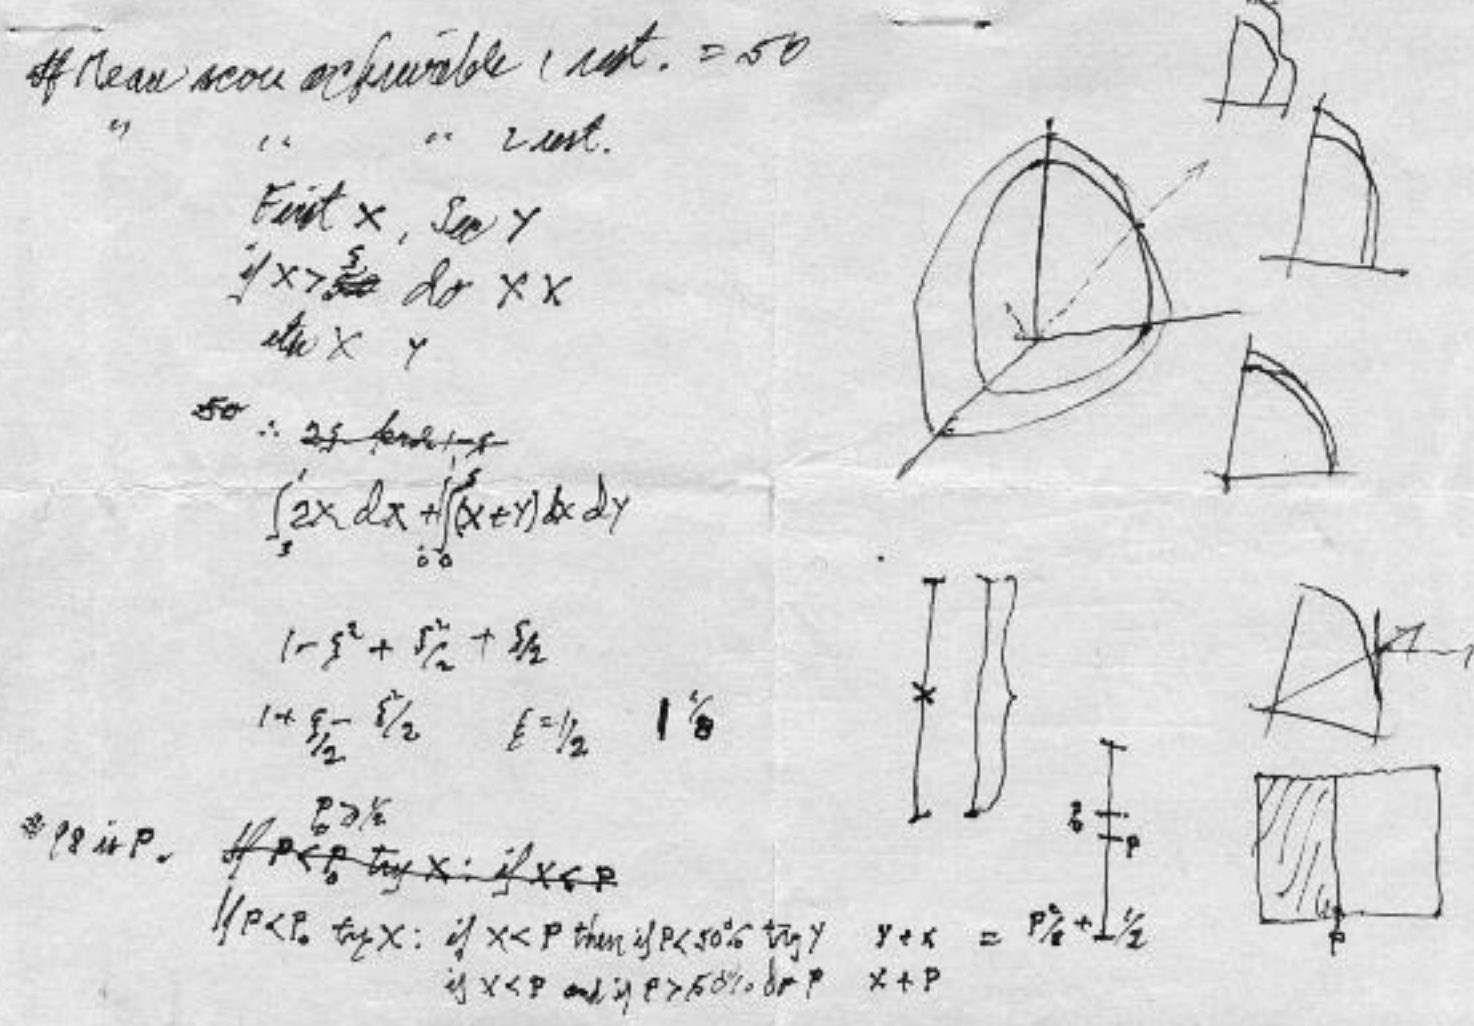 If Mean score achievable 1 rest. = 50
" " " 2 rest.
First X, Sec Y
if X > ξ do X X
else X Y
50 ∴ 2ξ
∫ξ^1 2x dx + ∫0^1∫0^ξ (x+y) dx dy
1 - ξ² + ξ²/2 + ξ/2
1 + ξ/2 - ξ²/2 ξ = 1/2 1 1/8
P₀ > 1/2
is P. If P < P₀ try X : if X < P
If P < P₀ try X : if X < P then if P < 50% try Y Y + X = P²/2 + 1/2
if X < P and if P > 50% do P X + P
P
P